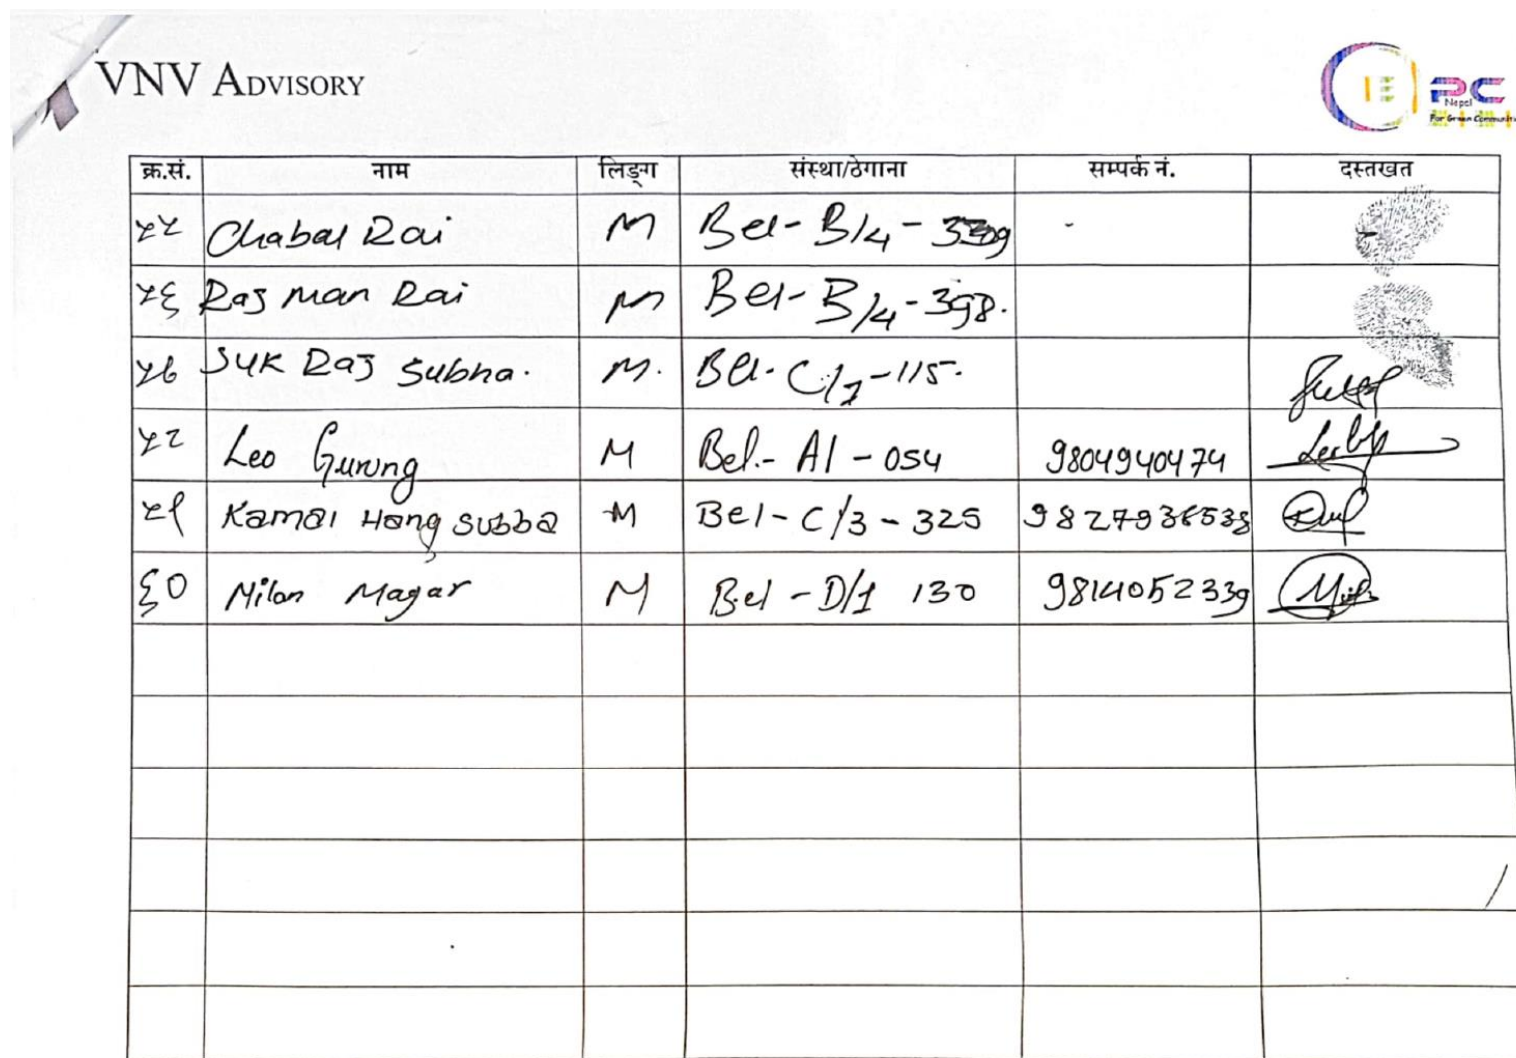 VNV ADVISORY
PC
Nepal
For Green Communit
क्र.सं. नाम लिङ्ग संस्था/ठेगाना सम्पर्क नं. दस्तखत
५५ Chabal Rai M Bel- B/4 -
५६ Raj man Rai M Bel- B/4 - 398.
५७ Suk Raj Subha. M. Bel- C/1 -115.
५८ Leo Gurung M Bel.- A1 - 054 9804940474
५९ Kamal Hang subba M Bel - C/3 - 325 9827936538
६० Milan Magar M Bel - D/1 130 9814052339